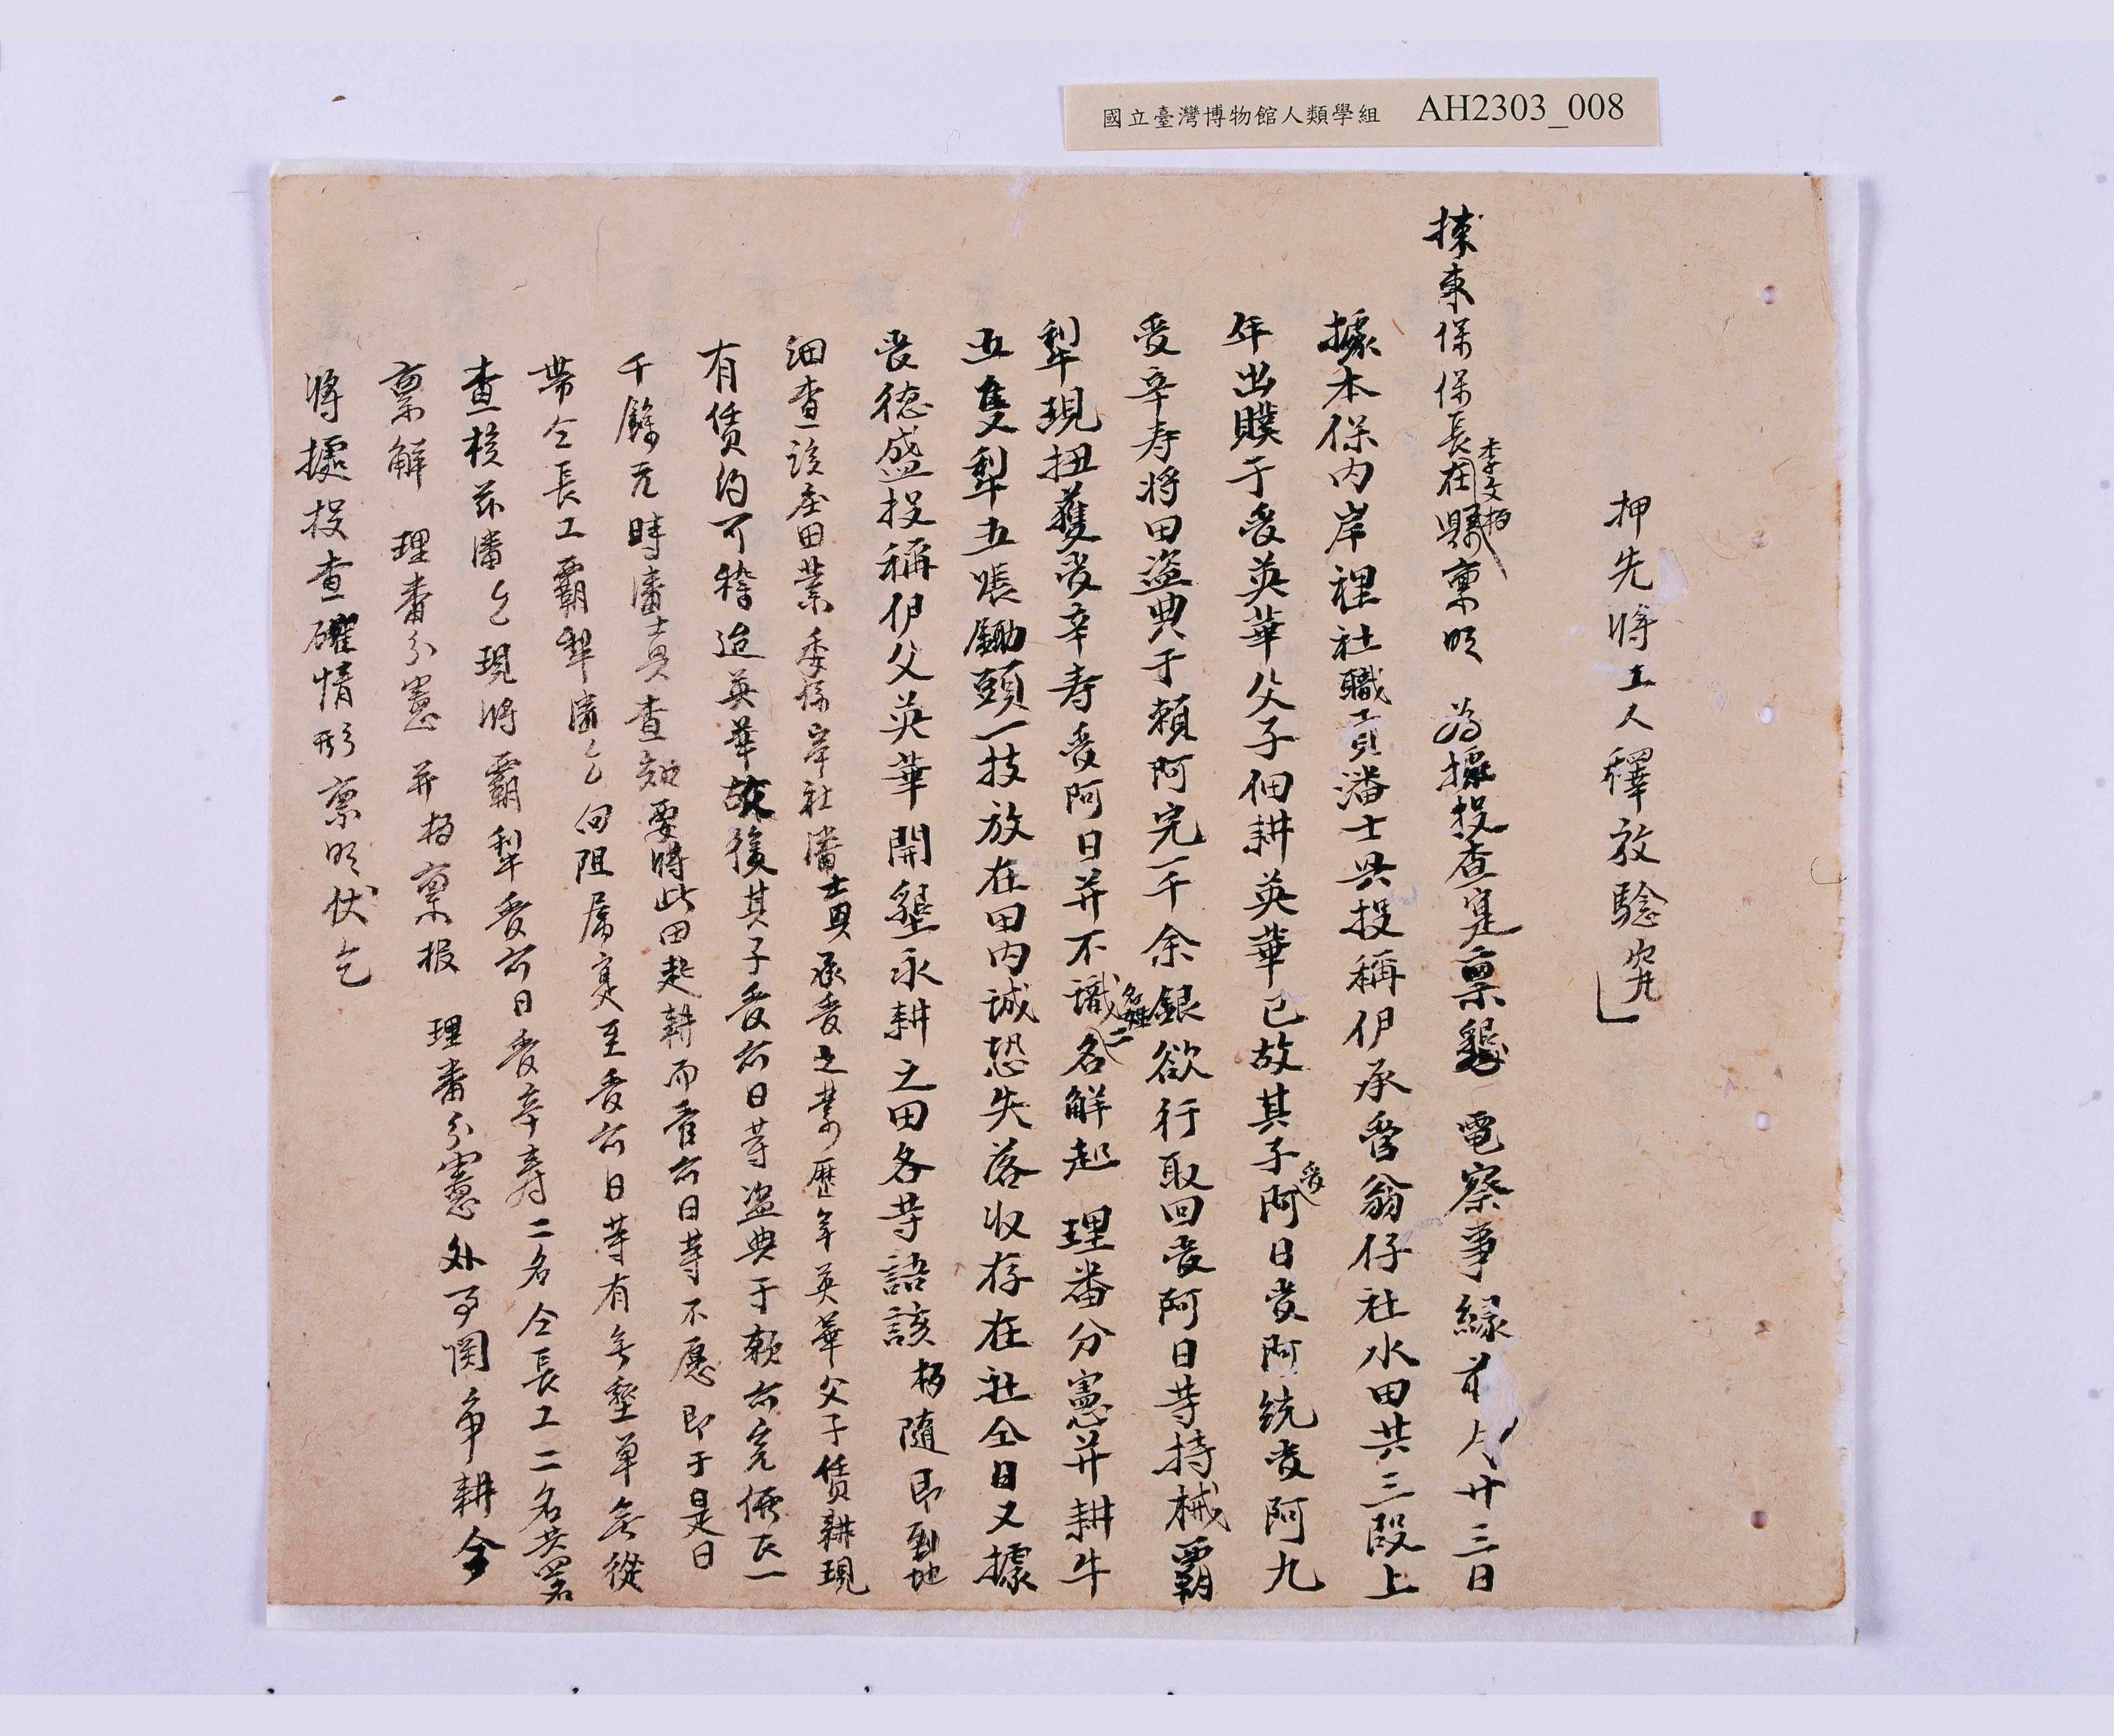 國立臺灣博物館人類學組 AH2303_008
押先將工人釋放驗究
揀東保保長李文在縣禀明 為據投查寔禀懇 電察事緣前月廿三日
據本保內岸裡社職員潘士興投稱伊承管翁仔社水田共三段上
年出贌于麥英華父子佃耕英華已故其子麥阿日麥阿統麥阿九
麥辛寿將田盜典于賴阿完一千余銀欲行取回麥阿日等持械霸
犁現扭獲麥辛寿麥阿日并不識名姓二名解赴 理番分憲并耕牛
五隻犁五張鋤頭一技放在田內誠恐失落收存在社仝日又據
麥德盛投稱伊父英華開墾永耕之田各等語該 随即到地
細查該處田業委係岸社潘士興承麥之業歷年英華父子賃耕現
有賃約可稽迨英華故後其子麥亦日等盜典于賴亦完佛艮一
千餘元時潘士興查知要將此田起耕而麥亦日等不愿即于是日
帶仝長工霸犁潘乞向阻属寔至麥亦日等有無墾單無從
查核茲潘乞現將霸犁麥亦日麥辛寿二名仝長工二名共四名
禀解 理番分憲并 禀报 理番分憲外事関争耕合
將據投查確情形禀明伏乞